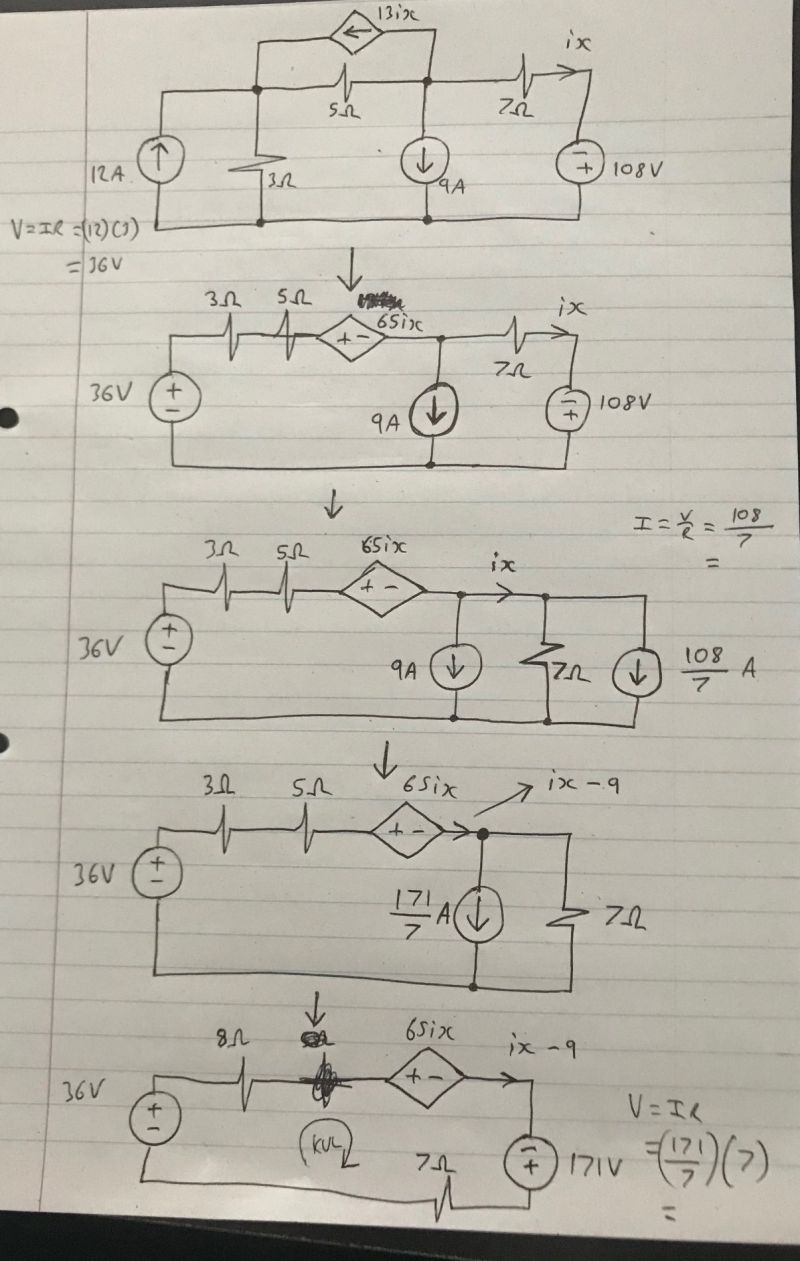 13ix
ix
5Ω
7Ω
12A
3Ω
9A
− + 108V
V=IR =(12)(3)
= 36V
3Ω 5Ω
65ix
ix
+ −
7Ω
36V + −
9A
− + 108V
I = V/R = 108/7
=
3Ω 5Ω 65ix
ix
+ −
36V + −
9A
7Ω
108/7 A
3Ω 5Ω 65ix ix − 9
+ −
36V + −
171/7 A
7Ω
8Ω 65ix ix − 9
+ −
36V + −
KVL
7Ω
− + 171V
V = IR
=(171/7)(7)
=